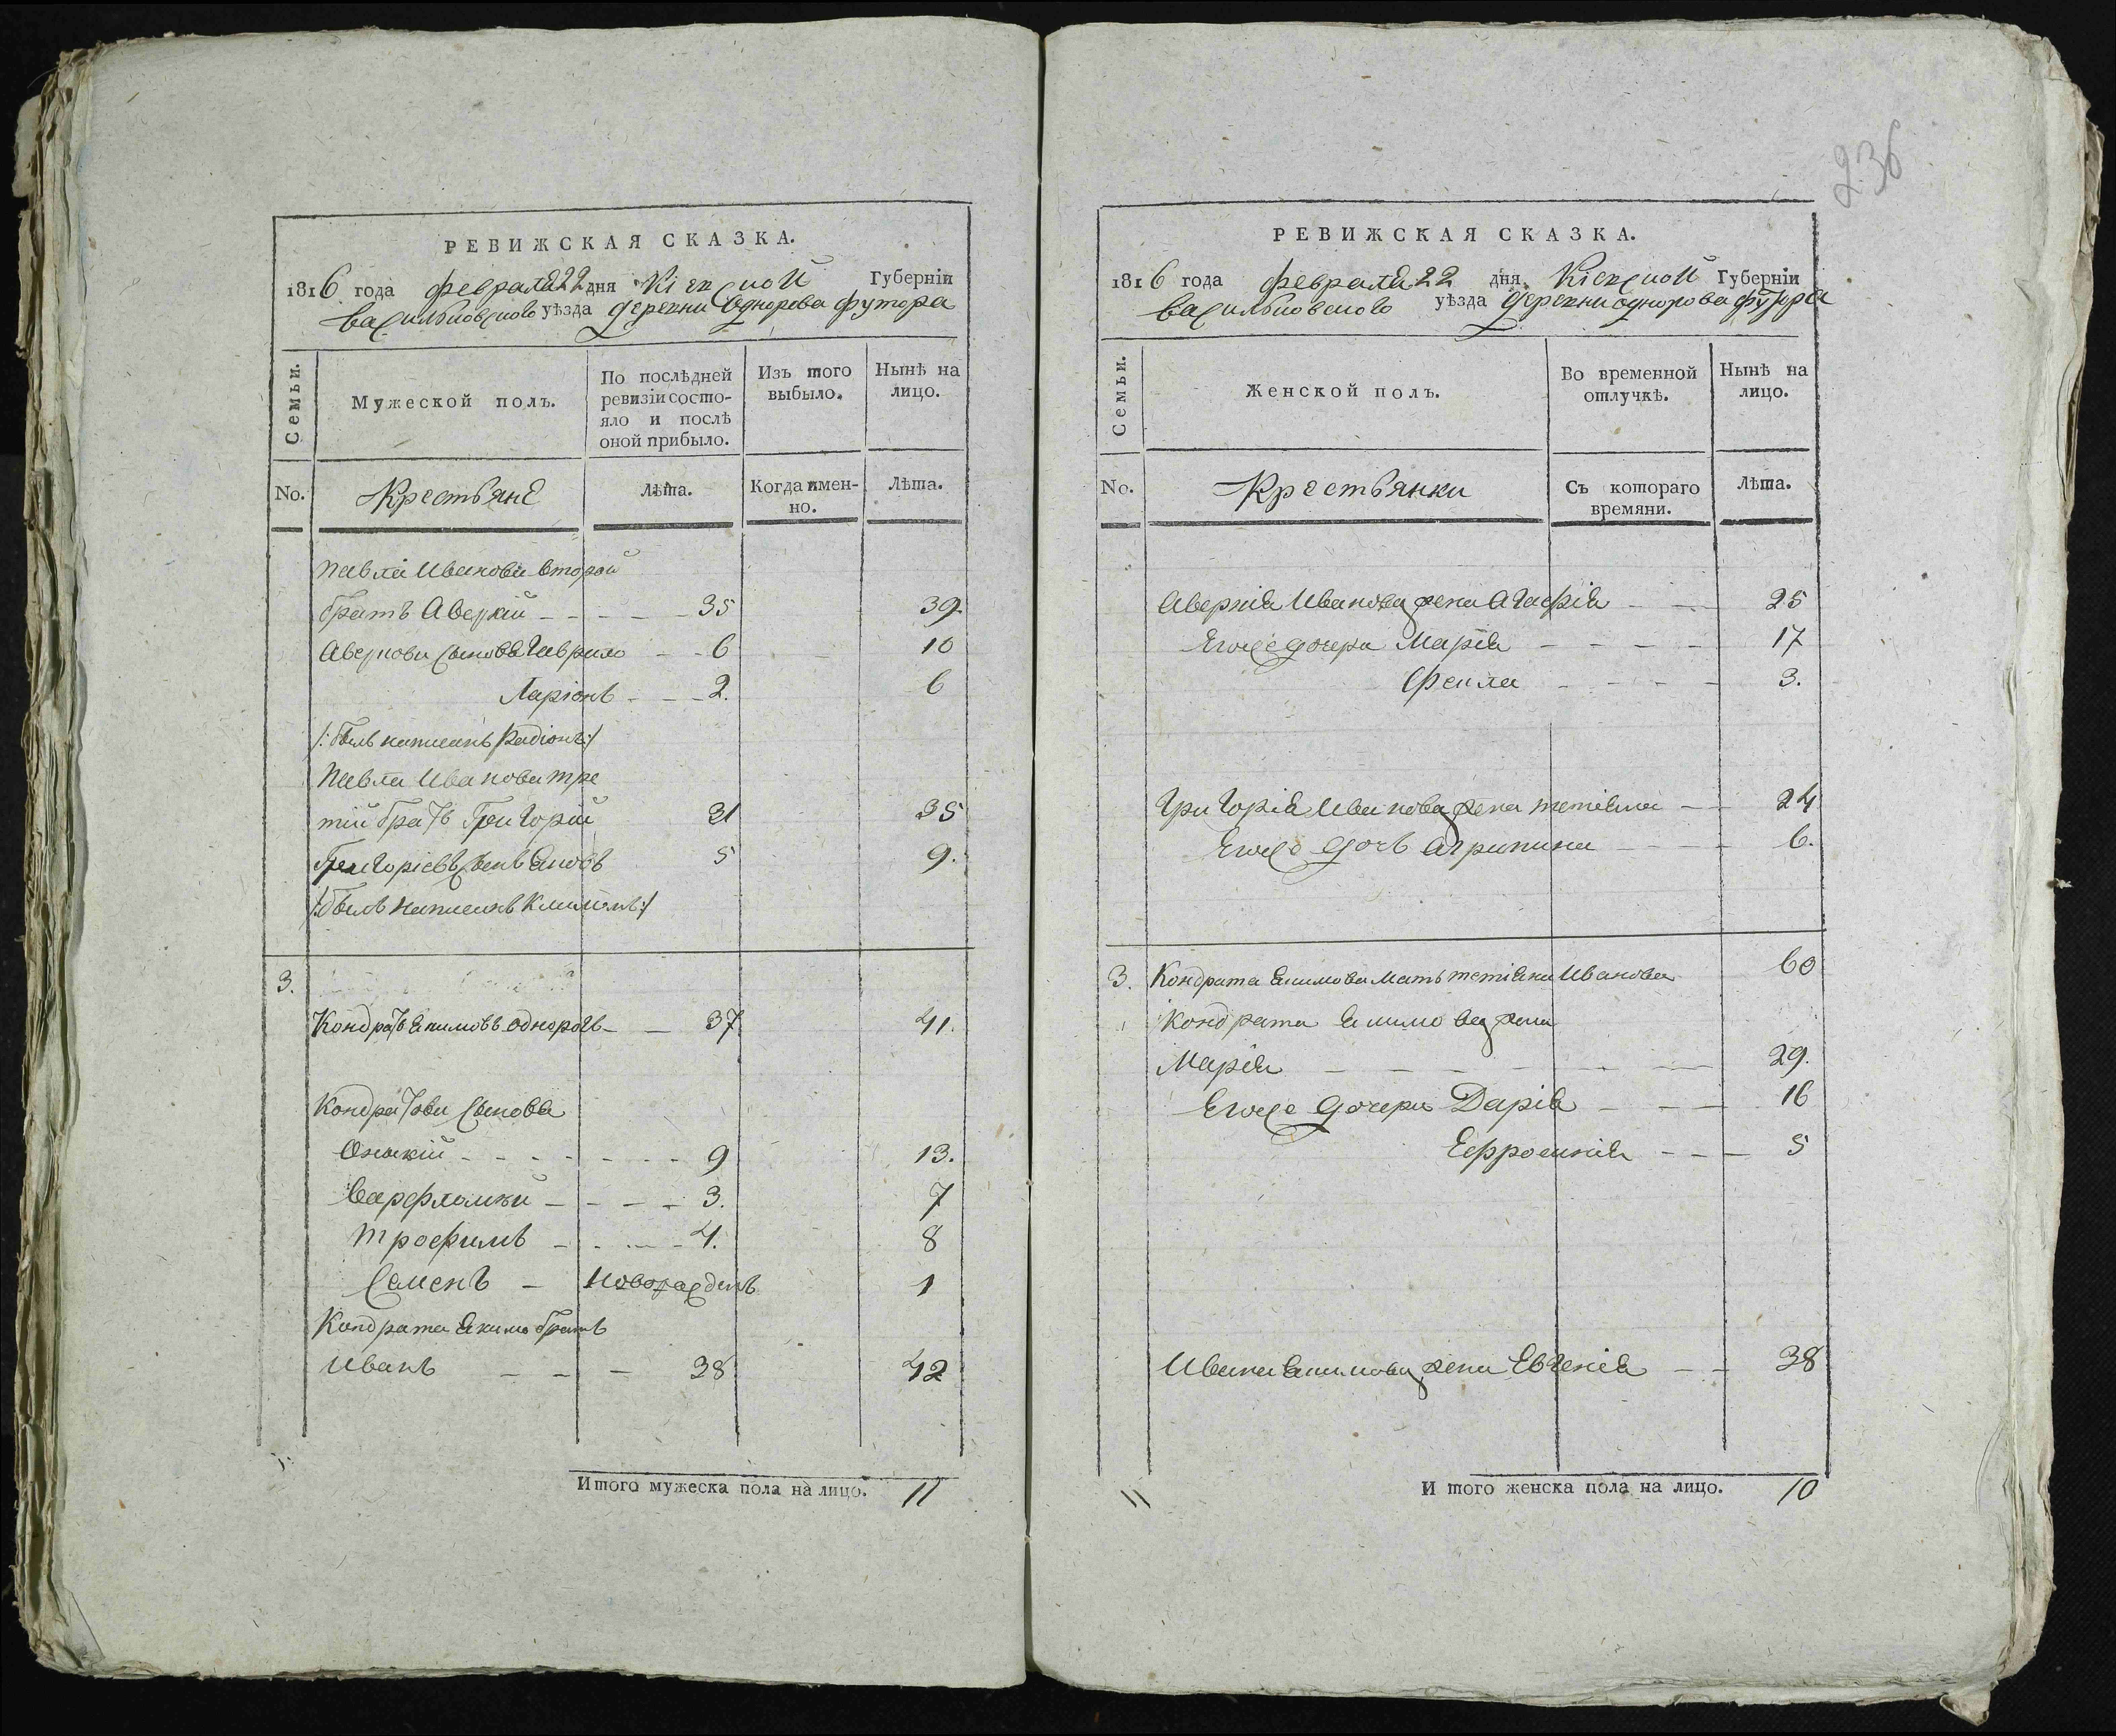 РЕВИЖСКАЯ СКАЗКА.
1816 года февраля 22 дня Кіевской Губерніи
васильковского уѣзда деревни Однорова футора
Семьи.
Мужеской полъ.
По послѣдней ревизіи состояло и послѣ оной прибыло.
Изъ того выбыло.
Нынѣ на лицо.
No.
Крестьяне
Лѣта.
Когда именно.
Лѣта.
Павла Иванова второй
братъ Аверкій - - - - - 35 39.
Аверкови сыновя Гаврило - - 6 10
Ларіонъ - - - 2. 6
/: былъ написанъ Радіонъ:/
Павла Иванова тре
тій братъ Григорій 31 35
Григоріевъ сынъ Яковъ 5 9.
/: былъ написанъ Климомъ:/
3.
Кондратъ Якимовъ однорогъ - - 37 41.
Кондратови сыновя
9 13.
Варфломей - - - - 3. 7
трофимъ - - - - 4. 8
Семенъ - новорожденъ 1
Кондрата Якимо братъ
Иванъ - - - 38 42
Итого мужеска пола на лицо. 11
236
РЕВИЖСКАЯ СКАЗКА.
1816 года февраля 22 дня Кіевской Губерніи
васильковского уѣзда деревни однорова футора
Семьи.
Женской полъ.
Во временной отлучкѣ.
Нынѣ на лицо.
No.
Крестьянки
Съ котораго времяни.
Лѣта.
Аверкія Иванова жена Агафія - - 25
Егоже дочери Марія - - - - 17
Фекла - - - - 3.
Григорія Иванова жена тетіяна - - 24
Егоже дочь Агрипина - - - - 6.
3. Кондрата Якимова мать тетіяна Иванова 60
Кондрата Якимова жена
Марія - - - - - - - 29.
Егоже дочери Дарія - - - 16
Ефросинія - - - 5
Ивана Якимова жена Евгенія - - 38
11
Итого женска пола на лицо. 10